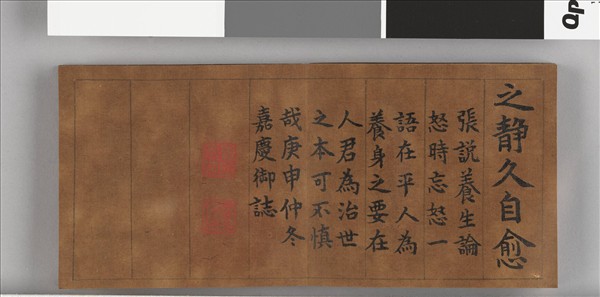 之靜久自愈
張說養生論
怒時忘怒一
語在平人為
養身之要在
人君為治世
之本可不慎
哉庚申仲冬
嘉慶御誌